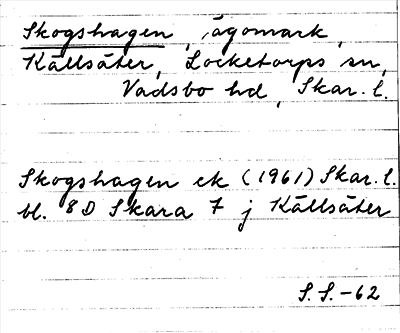 Skogshagen, ägomark,
Källsäter, Locketorps sn,
Vadsbo hd, Skar. l.
Skogshagen ek (1961) Skar. l.
bl. 8D Skara 7 j Källsäter
S.S.-62